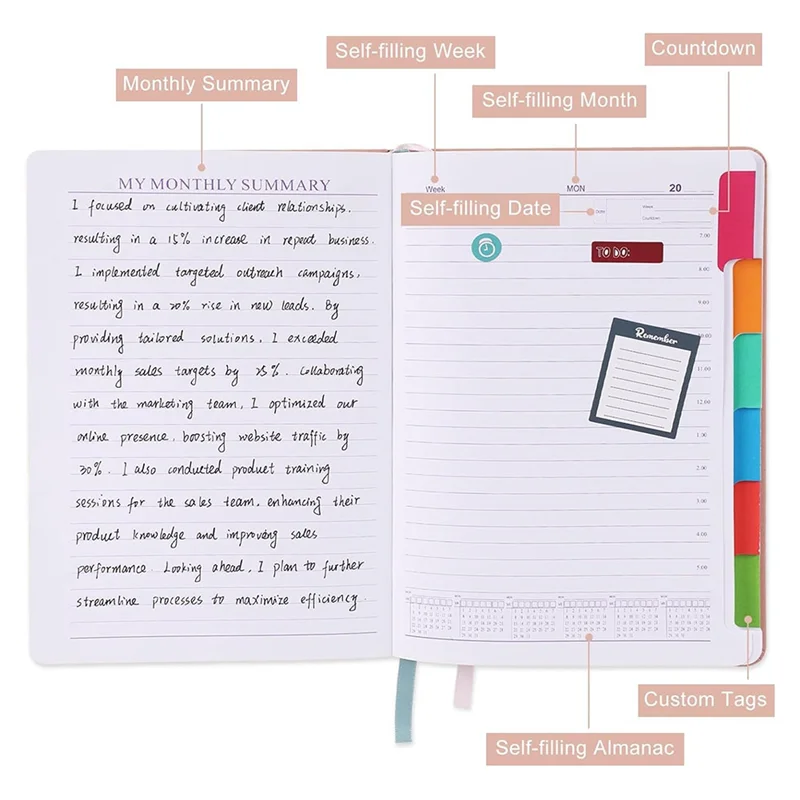 Self-filling Week
Countdown
Monthly Summary
Self-filling Month
MY MONTHLY SUMMARY
I focused on cultivating client relationships,
resulting in a 15% increase in repeat business.
I implemented targeted outreach campaigns,
resulting in a 20% rise in new leads. By
providing tailored solutions, I exceeded
monthly sales targets by 25%. Collaborating
with the marketing team, I optimized our
online presence, boosting website traffic by
30%. I also conducted product training
sessions for the sales team, enhancing their
product knowledge and improving sales
performance. Looking ahead, I plan to further
streamline processes to maximize efficiency.
Week MON 20
Self-filling Date
Date Week
Countdown
7.00
TO DO:
8.00
9.00
Remember
10.00
11.00
12.00
1.00
2.00
3.00
4.00
5.00
Custom Tags
Self-filling Almanac